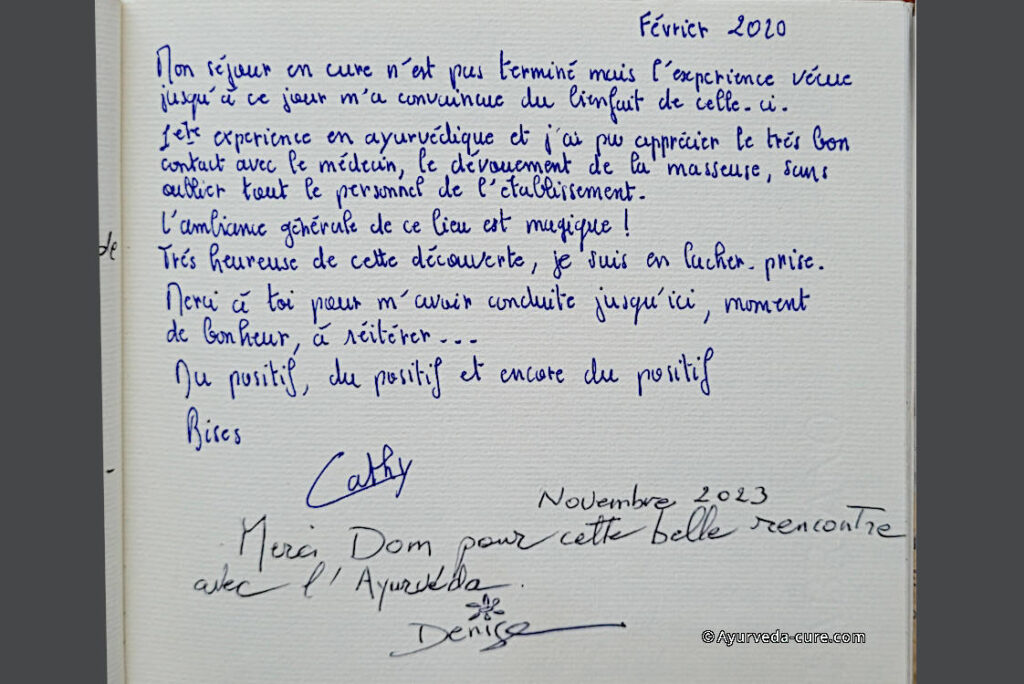 Février 2020
Mon séjour en cure n'est pas terminé mais l'experience vécue
jusqu'à ce jour m'a convaincue du bienfait de celle-ci.
1ère experience en ayurvédique et j'ai pu apprécier le trés bon
contact avec le médecin, le dévouement de la masseuse, sans
oublier tout le personnel de l'établissement.
L'ambiance générale de ce lieu est magique !
Trés heureuse de cette découverte, je suis en lacher-prise.
Merci à toi pour m'avoir conduite jusqu'ici, moment
de bonheur, à réitérer...
Du positif, du positif et encore du positif
de
Bises
Cathy
Novembre 2023
Merci Dom pour cette belle rencontre
avec l'Ayurvéda.
Denise
©Ayurveda-cure.com